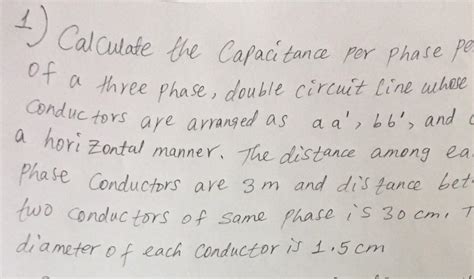 1) Calculate the Capacitance per phase pe
of a three phase, double circuit line whose
conductors are arranged as aa', bb', and c
a horizontal manner. The distance among ea
Phase Conductors are 3 m and distance bet
two conductors of same phase is 30 cm. T
diameter of each conductor is 1.5 cm